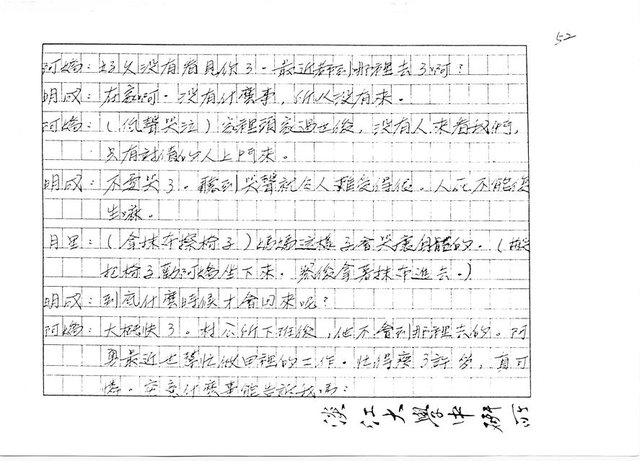 52
阿嬌：好久沒有看見你了。最近都到那裡去了啊？
明成：在家啊。沒有什麼事，所以沒有來。
阿嬌：（低聲哭泣）家裡頭家過世後，沒有人來看我們，
只有討債的人上門來。
明成：不要哭了。聽到哭聲就令人難受得很。人死不能復
生嘛。
月里：（拿抹布擦椅子）媽媽這樣子會哭壞身體的。（
把椅子勸阿嬌坐下來。然後拿著抹布進去。）
明成：到底什麼時候才會回來呢？
阿嬌：大概快了。村公所下班後，他不會到那裡去的。阿
最近也幫忙做田裡的工作。忙得瘦了許多，真可
憐。究竟什麼事能告訴我嗎？
淡江大學中研所